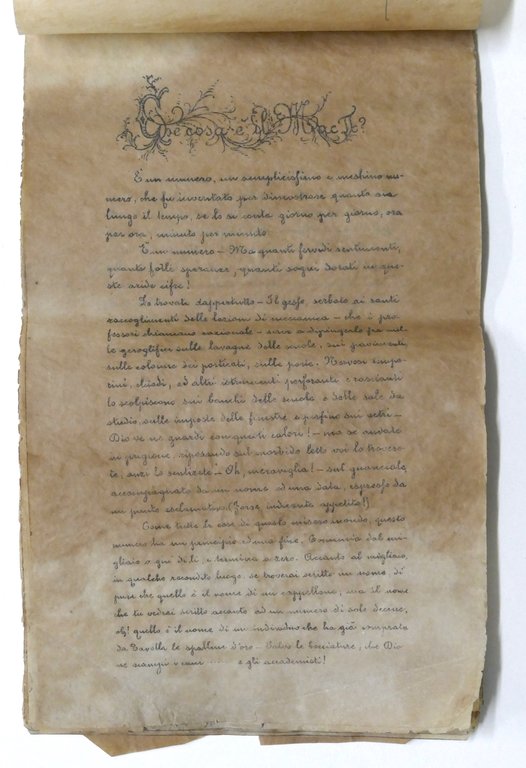 Che cosa è il Mac P?
È un numero, un semplicissimo e meschino nu-
mero, che fu inventato per dimostrare quanto sia
lungo il tempo, se lo si conta giorno per giorno, ora
per ora, minuto per minuto.
È un numero – Ma quanti fervidi sentimenti,
quante folli speranze, quanti sogni dorati in que-
ste aride cifre!
Lo trovate dappertutto – Il gesso, serbato ai santi
raccoglimenti delle lezioni di meccanica – che i pro-
fessori chiamano razionale – serve a dipingerlo fra mil-
le geroglifici sulle lavagne delle scuole, sui pavimenti,
sulle colonne dei porticati, sulle porte. Nervosi tempe-
rini, chiodi, ed altri istrumenti perforanti e rascianti
lo scolpiscono sui banchi delle scuole e delle sale da
studio, sulle imposte delle finestre e perfino sui vetri –
Dio ve ne guardi con questi calori! – ma se andate
in prigione, riposando sul morbido letto voi lo trovere-
te, anzi lo sentirete – Oh, meraviglia! – sul guanciale,
accompagnato da un nome ed una data, espresso da
un punto esclamativo. (Forse indicante appetito!)
Come tutte le cose di questo misero mondo, questo
numero ha un principio ed una fine. Comincia dal mi-
gliaio o giù di lì, e termina a zero. Accanto al migliaio,
in qualche recondito luogo, se troverai scritto un nome, di'
pure che quello è il nome di un cappellone, ma il nome
che tu vedrai scritto accanto ad un numero di sole decine,
oh! quello è il nome di un individuo che ha già comprato
da Tavolla le spalline d'oro – Salvo le bocciature, che Dio
ne scampi e gli accademisti!